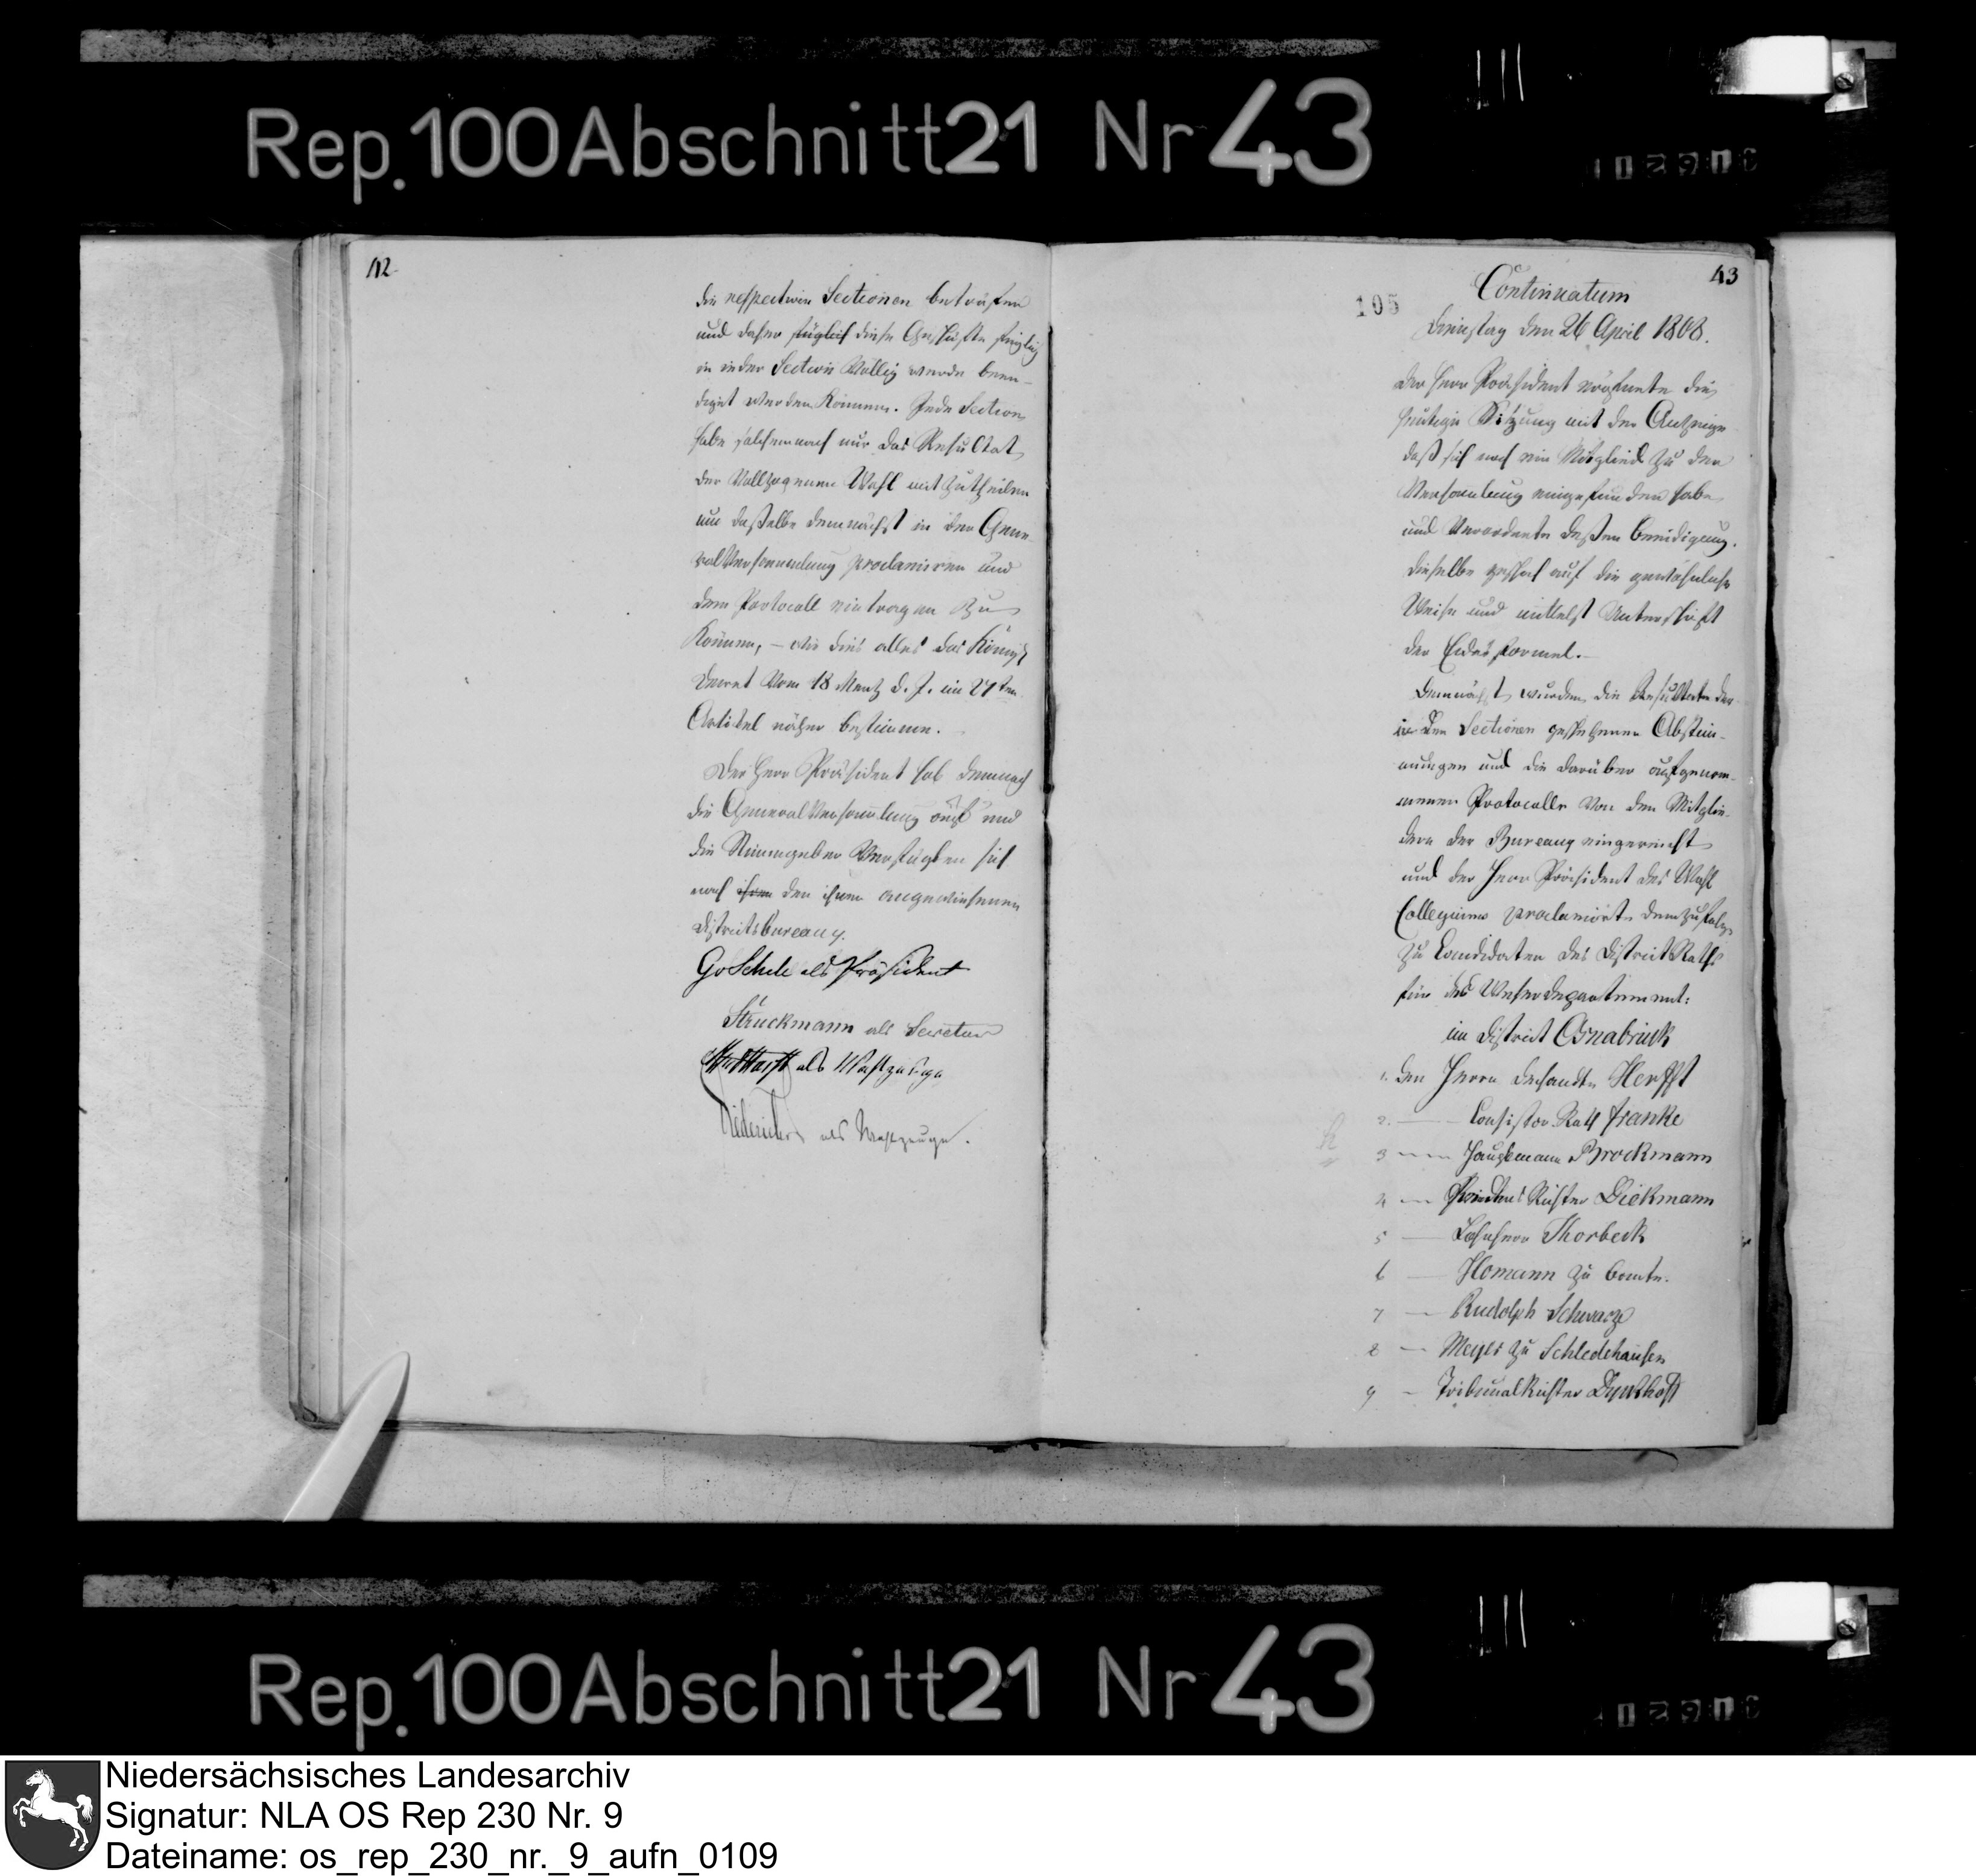 Rep. 100 Abschnitt 21 Nr 43
42
die respectiven Sectionen beträfen
und daher füglich diese Geschäfte
in jeder Section völlig werde been-
diget werden können. Jede Section
habe solchemnach nur das Resultat
der vollzogenen Wahl mitzutheilen
um daßelbe demnächst in der Gene-
ralVersammlung proclamiren und
dem Protocoll eintragen zu
können, – wie dies alles das Königl.
Decret vom 18 Mertz d. J. im 27ten
Artikel näher bestimme.
Der Herr Präsident hob demnach
die GeneralVersammlung auf und
die Stimmgeber verfügten sich
nach ihren den ihnen angewiesenen
Districtsbureaux.
GvSchele als Präsident
Struckmann als Secretair
als Wahlzeuge
Niederich als Wahlzeuge.
43
105
Continuatum
Dienstag den 26 April 1808.
Der Herr Präsident eröfnete die
heutige Sitzung mit der Anzeige
daß sich noch ein Mitglied zu der
Versamlung eingefunden habe
und verordnete deßen Beeidigung.
Dieselbe geschah auf die gewöhnliche
Weise und mittelst Unterschrift
der Eidesformel.–
Demnächst wurden die Resultate der
in den Sectionen geschehenen Abstim-
mungen und die darüber aufgenom-
menen Protocolle von den Mitglie-
dern der Bureaux eingereicht
und der Herr Präsident des Wahl
Collegiums proclamirte demzufolge
zu Candidaten des DistrictRaths
für das Weserdepartement:
im District Osnabrück
1. den Herrn Gesandte Herfft
2. — Consistor. Rath Franke
3 — Hauptmann Brockmann
4 — Friedens Richter Diekmann
5 — Lohnherr Thorbeck
6 — Homann zu Bomte.
7 — Rudolph Schwarze
8 — Meyer zu Schledehausen
9 — Tribunal Richter Dyckhoff
Rep. 100 Abschnitt 21 Nr 43
Niedersächsisches Landesarchiv
Signatur: NLA OS Rep 230 Nr. 9
Dateiname: os_rep_230_nr._9_aufn_0109